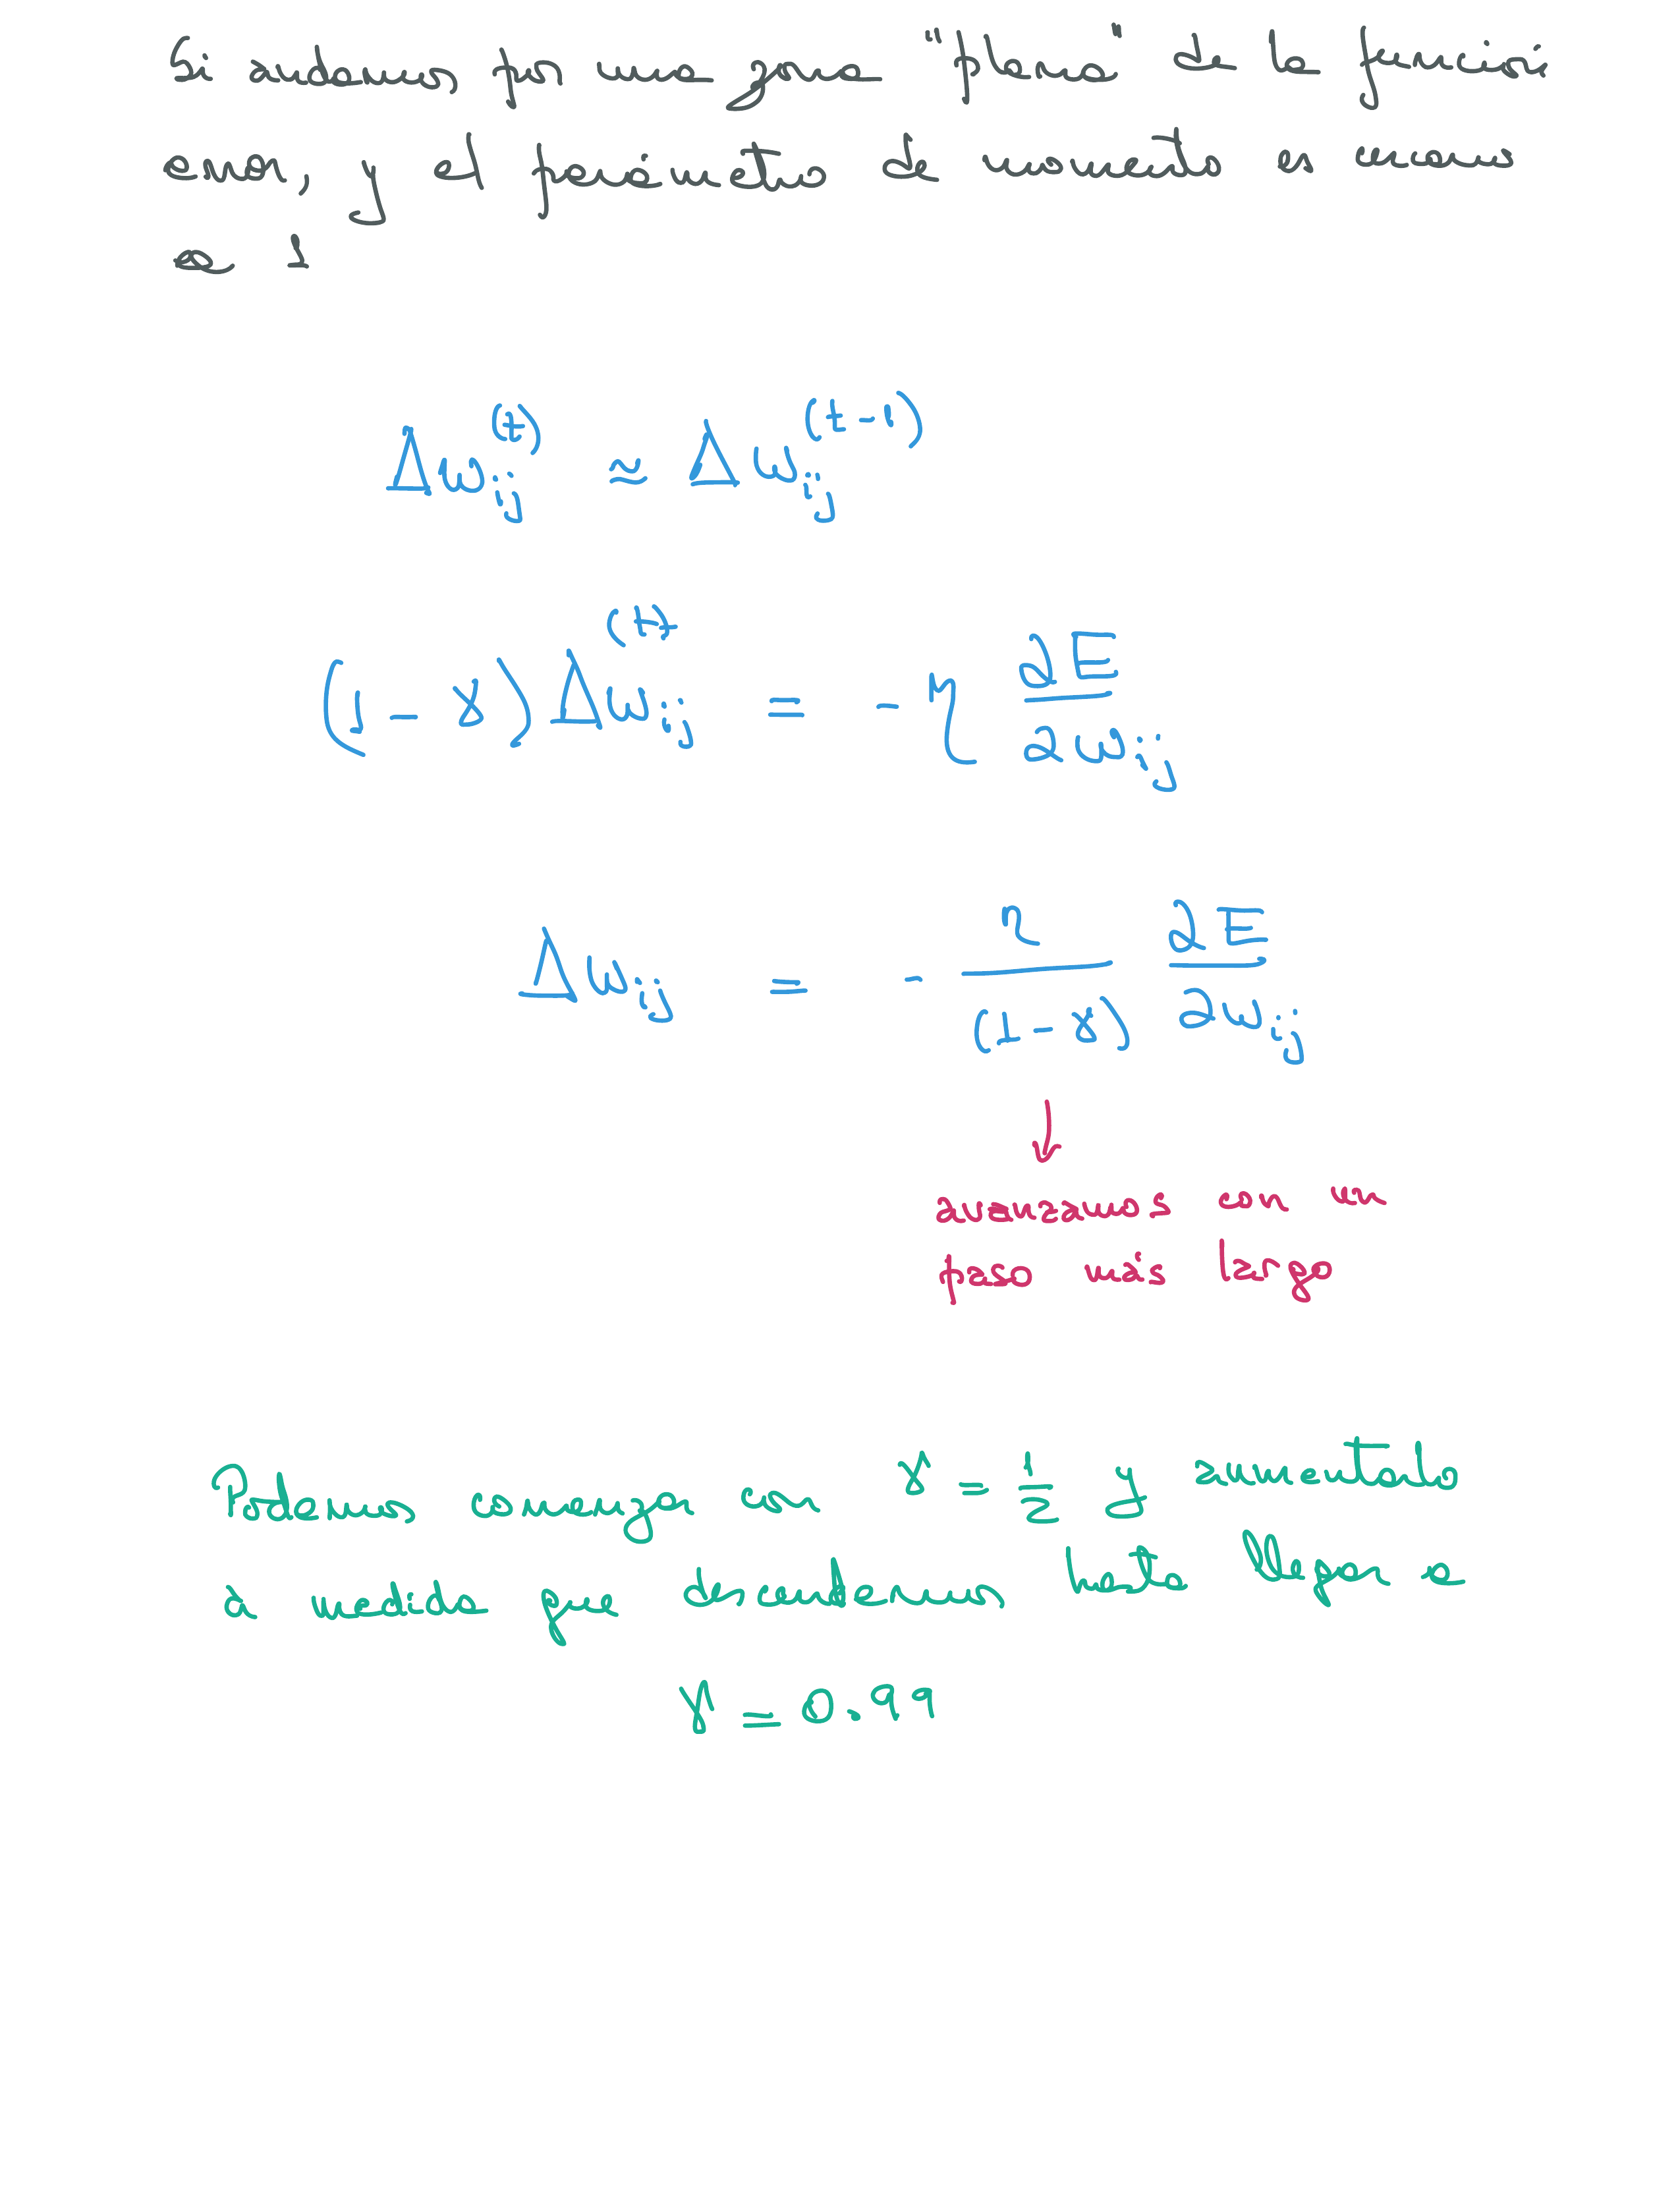 Si andamos por una zona "plana" de la función
error, y el parámetro de momento es cercano
a 1
Δw_ij^(t) ≈ Δw_ij^(t-1)
(1 - γ) Δw_ij^(t) = - η ∂E/∂w_ij
Δw_ij = - η/(1-γ) ∂E/∂w_ij
↓
avanzamos con un
paso más largo
Podemos comenzar con γ = 1/2 y aumentalo
a medida que descendemos, hasta llegar a
γ = 0.99